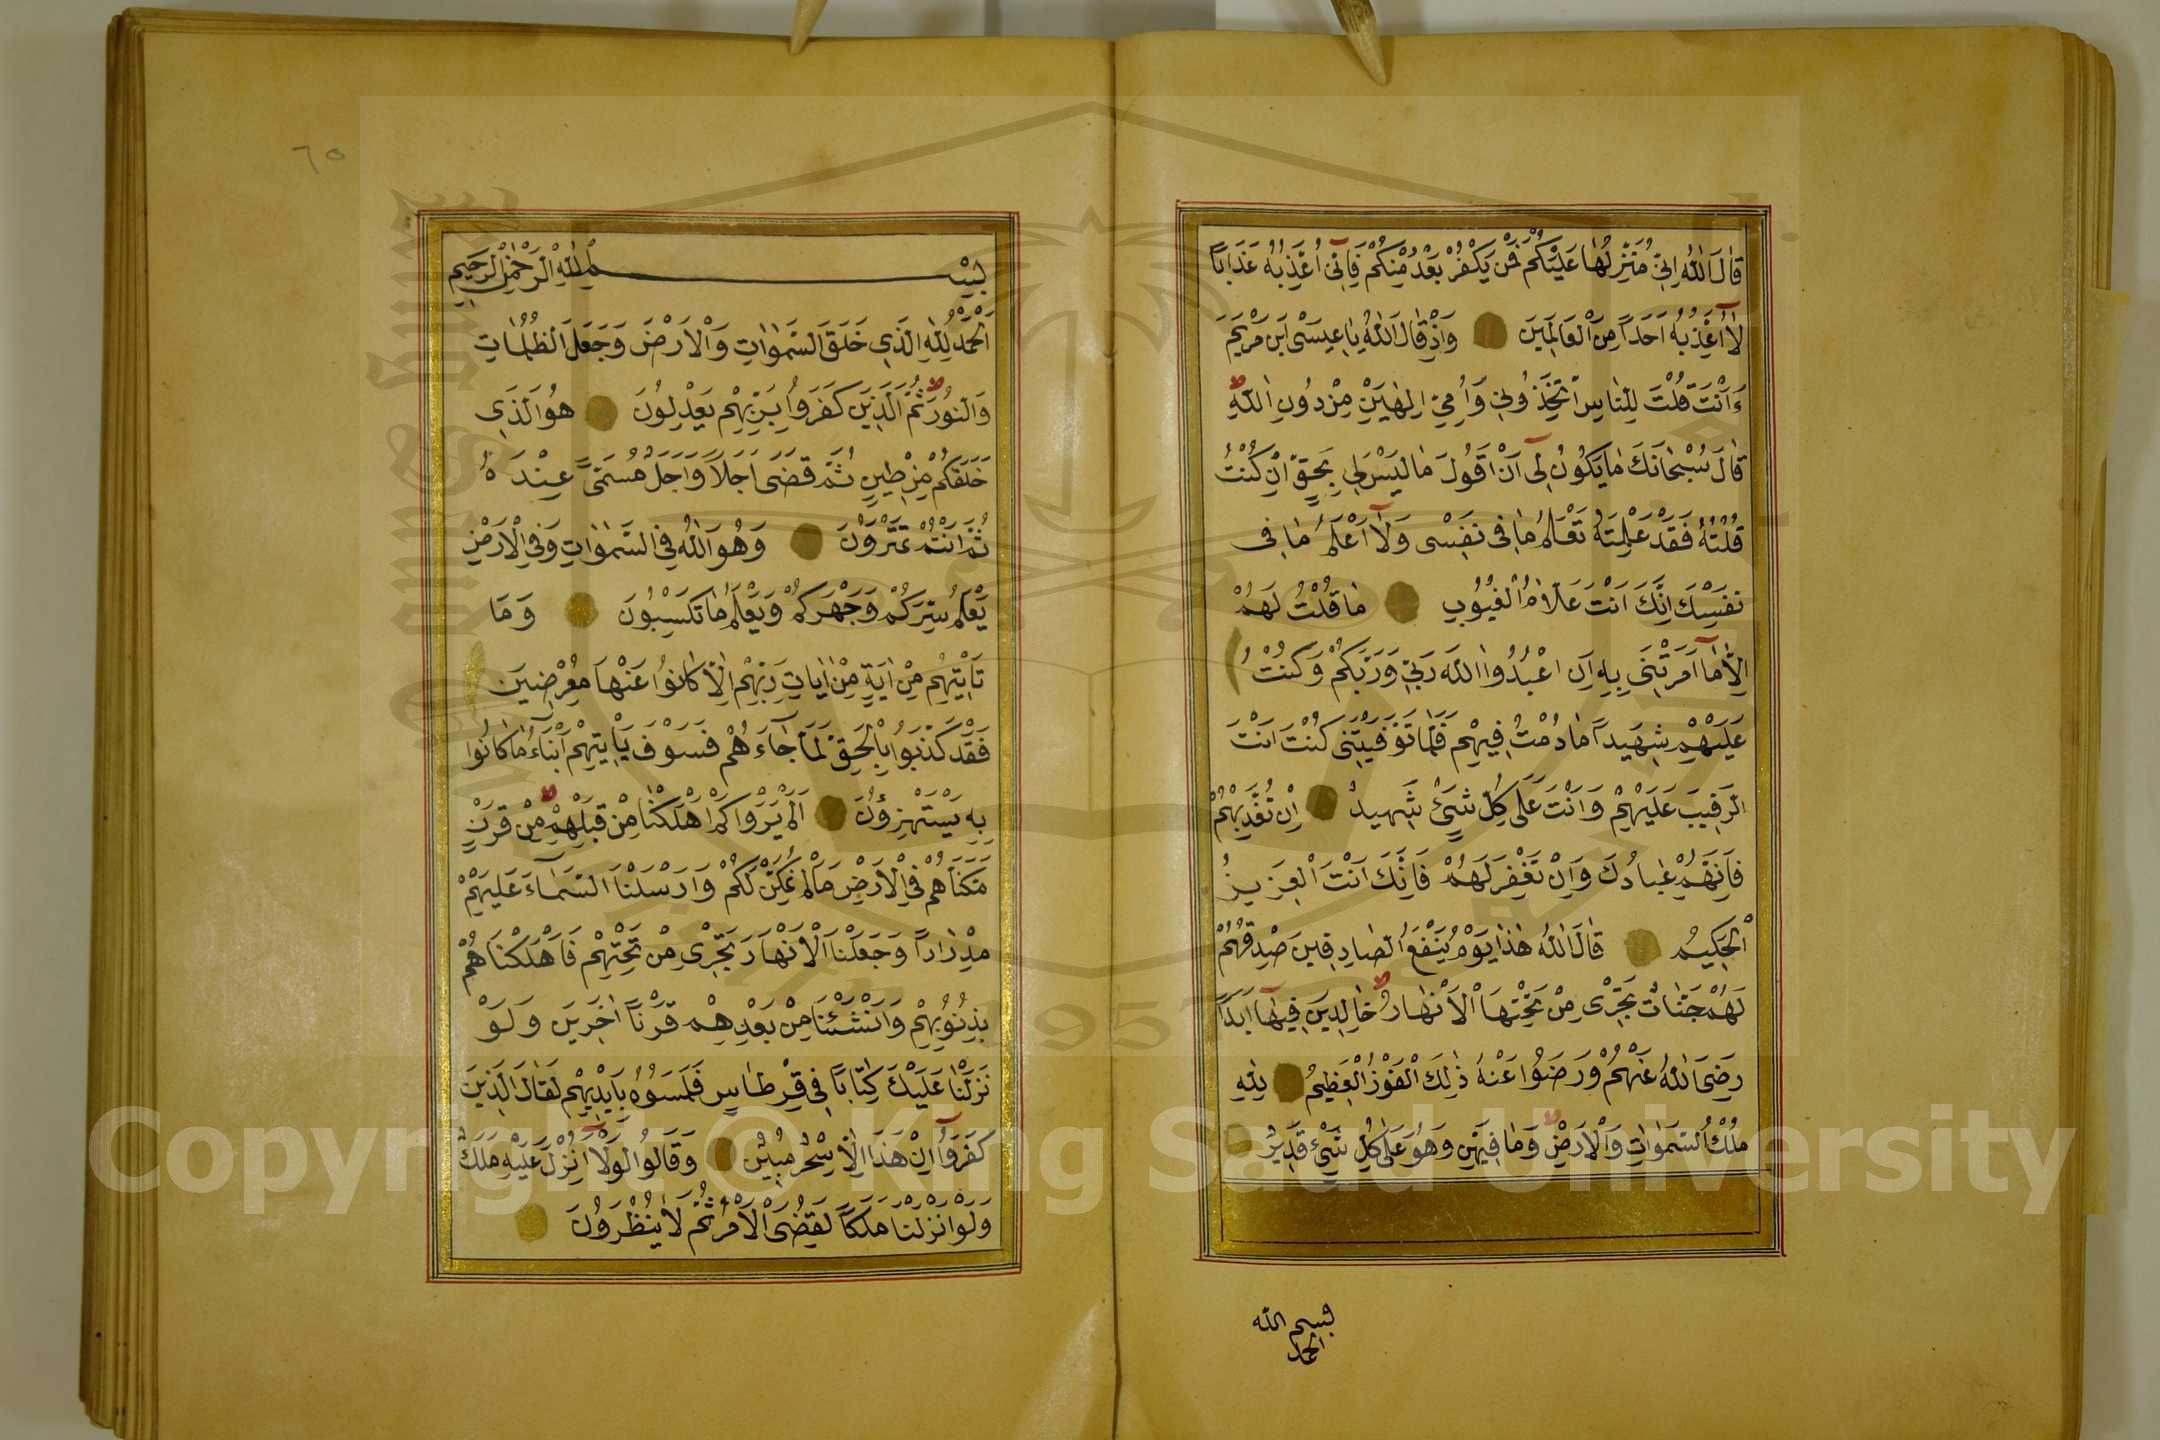 قَالَ اللّٰهُ اِنِّي مُنَزِّلُهَا عَلَيْكُمْ فَمَنْ يَكْفُرْ بَعْدُ مِنْكُمْ فَاِنِّي اُعَذِّبُهُ عَذَابًا
لَا اُعَذِّبُهُ اَحَدًا مِنَ الْعَالَمِينَ وَاِذْ قَالَ اللّٰهُ يَا عِيسَى ابْنَ مَرْيَمَ
ءَاَنْتَ قُلْتَ لِلنَّاسِ اتَّخِذُونِي وَاُمِّيَ اِلٰهَيْنِ مِنْ دُونِ اللّٰهِ
قَالَ سُبْحَانَكَ مَا يَكُونُ لِي اَنْ اَقُولَ مَا لَيْسَ لِي بِحَقٍّ اِنْ كُنْتُ
قُلْتُهُ فَقَدْ عَلِمْتَهُ تَعْلَمُ مَا فِي نَفْسِي وَلَا اَعْلَمُ مَا فِي
نَفْسِكَ اِنَّكَ اَنْتَ عَلَّامُ الْغُيُوبِ مَا قُلْتُ لَهُمْ
اِلَّا مَا اَمَرْتَنِي بِهِ اَنِ اعْبُدُوا اللّٰهَ رَبِّي وَرَبَّكُمْ وَكُنْتُ
عَلَيْهِمْ شَهِيدًا مَا دُمْتُ فِيهِمْ فَلَمَّا تَوَفَّيْتَنِي كُنْتَ اَنْتَ
الرَّقِيبَ عَلَيْهِمْ وَاَنْتَ عَلَى كُلِّ شَيْءٍ شَهِيدٌ اِنْ تُعَذِّبْهُمْ
فَاِنَّهُمْ عِبَادُكَ وَاِنْ تَغْفِرْ لَهُمْ فَاِنَّكَ اَنْتَ الْعَزِيزُ
الْحَكِيمُ قَالَ اللّٰهُ هٰذَا يَوْمُ يَنْفَعُ الصَّادِقِينَ صِدْقُهُمْ
لَهُمْ جَنَّاتٌ تَجْرِي مِنْ تَحْتِهَا الْاَنْهَارُ خَالِدِينَ فِيهَا اَبَدًا
رَضِيَ اللّٰهُ عَنْهُمْ وَرَضُوا عَنْهُ ذٰلِكَ الْفَوْزُ الْعَظِيمُ لِلّٰهِ
مُلْكُ السَّمٰوَاتِ وَالْاَرْضِ وَمَا فِيهِنَّ وَهُوَ عَلَى كُلِّ شَيْءٍ قَدِيرٌ
بسم الله
الحمد
٦٥
بِسْمِ اللّٰهِ الرَّحْمٰنِ الرَّحِيمِ
اَلْحَمْدُ لِلّٰهِ الَّذِي خَلَقَ السَّمٰوَاتِ وَالْاَرْضَ وَجَعَلَ الظُّلُمَاتِ
وَالنُّورَ ثُمَّ الَّذِينَ كَفَرُوا بِرَبِّهِمْ يَعْدِلُونَ هُوَ الَّذِي
خَلَقَكُمْ مِنْ طِينٍ ثُمَّ قَضَى اَجَلًا وَاَجَلٌ مُسَمًّى عِنْدَهُ
ثُمَّ اَنْتُمْ تَمْتَرُونَ وَهُوَ اللّٰهُ فِي السَّمٰوَاتِ وَفِي الْاَرْضِ
يَعْلَمُ سِرَّكُمْ وَجَهْرَكُمْ وَيَعْلَمُ مَا تَكْسِبُونَ وَمَا
تَأْتِيهِمْ مِنْ اٰيَةٍ مِنْ اٰيَاتِ رَبِّهِمْ اِلَّا كَانُوا عَنْهَا مُعْرِضِينَ
فَقَدْ كَذَّبُوا بِالْحَقِّ لَمَّا جَاءَهُمْ فَسَوْفَ يَأْتِيهِمْ اَنْبَاءُ مَا كَانُوا
بِهِ يَسْتَهْزِؤُنَ اَلَمْ يَرَوْا كَمْ اَهْلَكْنَا مِنْ قَبْلِهِمْ مِنْ قَرْنٍ
مَكَّنَّاهُمْ فِي الْاَرْضِ مَا لَمْ نُمَكِّنْ لَكُمْ وَاَرْسَلْنَا السَّمَاءَ عَلَيْهِمْ
مِدْرَارًا وَجَعَلْنَا الْاَنْهَارَ تَجْرِي مِنْ تَحْتِهِمْ فَاَهْلَكْنَاهُمْ
بِذُنُوبِهِمْ وَاَنْشَئْنَا مِنْ بَعْدِهِمْ قَرْنًا اٰخَرِينَ وَلَوْ
نَزَّلْنَا عَلَيْكَ كِتَابًا فِي قِرْطَاسٍ فَلَمَسُوهُ بِاَيْدِيهِمْ لَقَالَ الَّذِينَ
كَفَرُوا اِنْ هَذَا اِلَّا سِحْرٌ مُبِينٌ وَقَالُوا لَوْلَا اُنْزِلَ عَلَيْهِ مَلَكٌ
وَلَوْ اَنْزَلْنَا مَلَكًا لَقُضِيَ الْاَمْرُ ثُمَّ لَا يُنْظَرُونَ
1957
Copyright © King Saud University